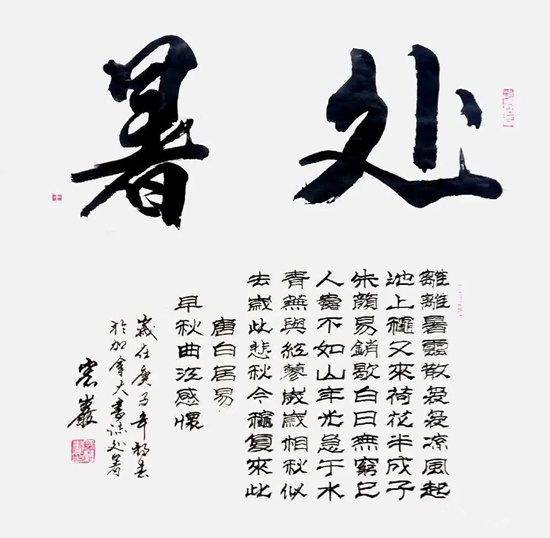 处暑
離離暑雲散裊裊凉風起
池上穐又來荷花半成子
朱顏易銷歇白日無窮已
人壽不如山年光急于水
青無與紅蓼歲歲相秋似
去歲此悲秋今穐復來此
唐白居易
早秋曲江感懷
歲在庚子年
於加拿大書誌处暑